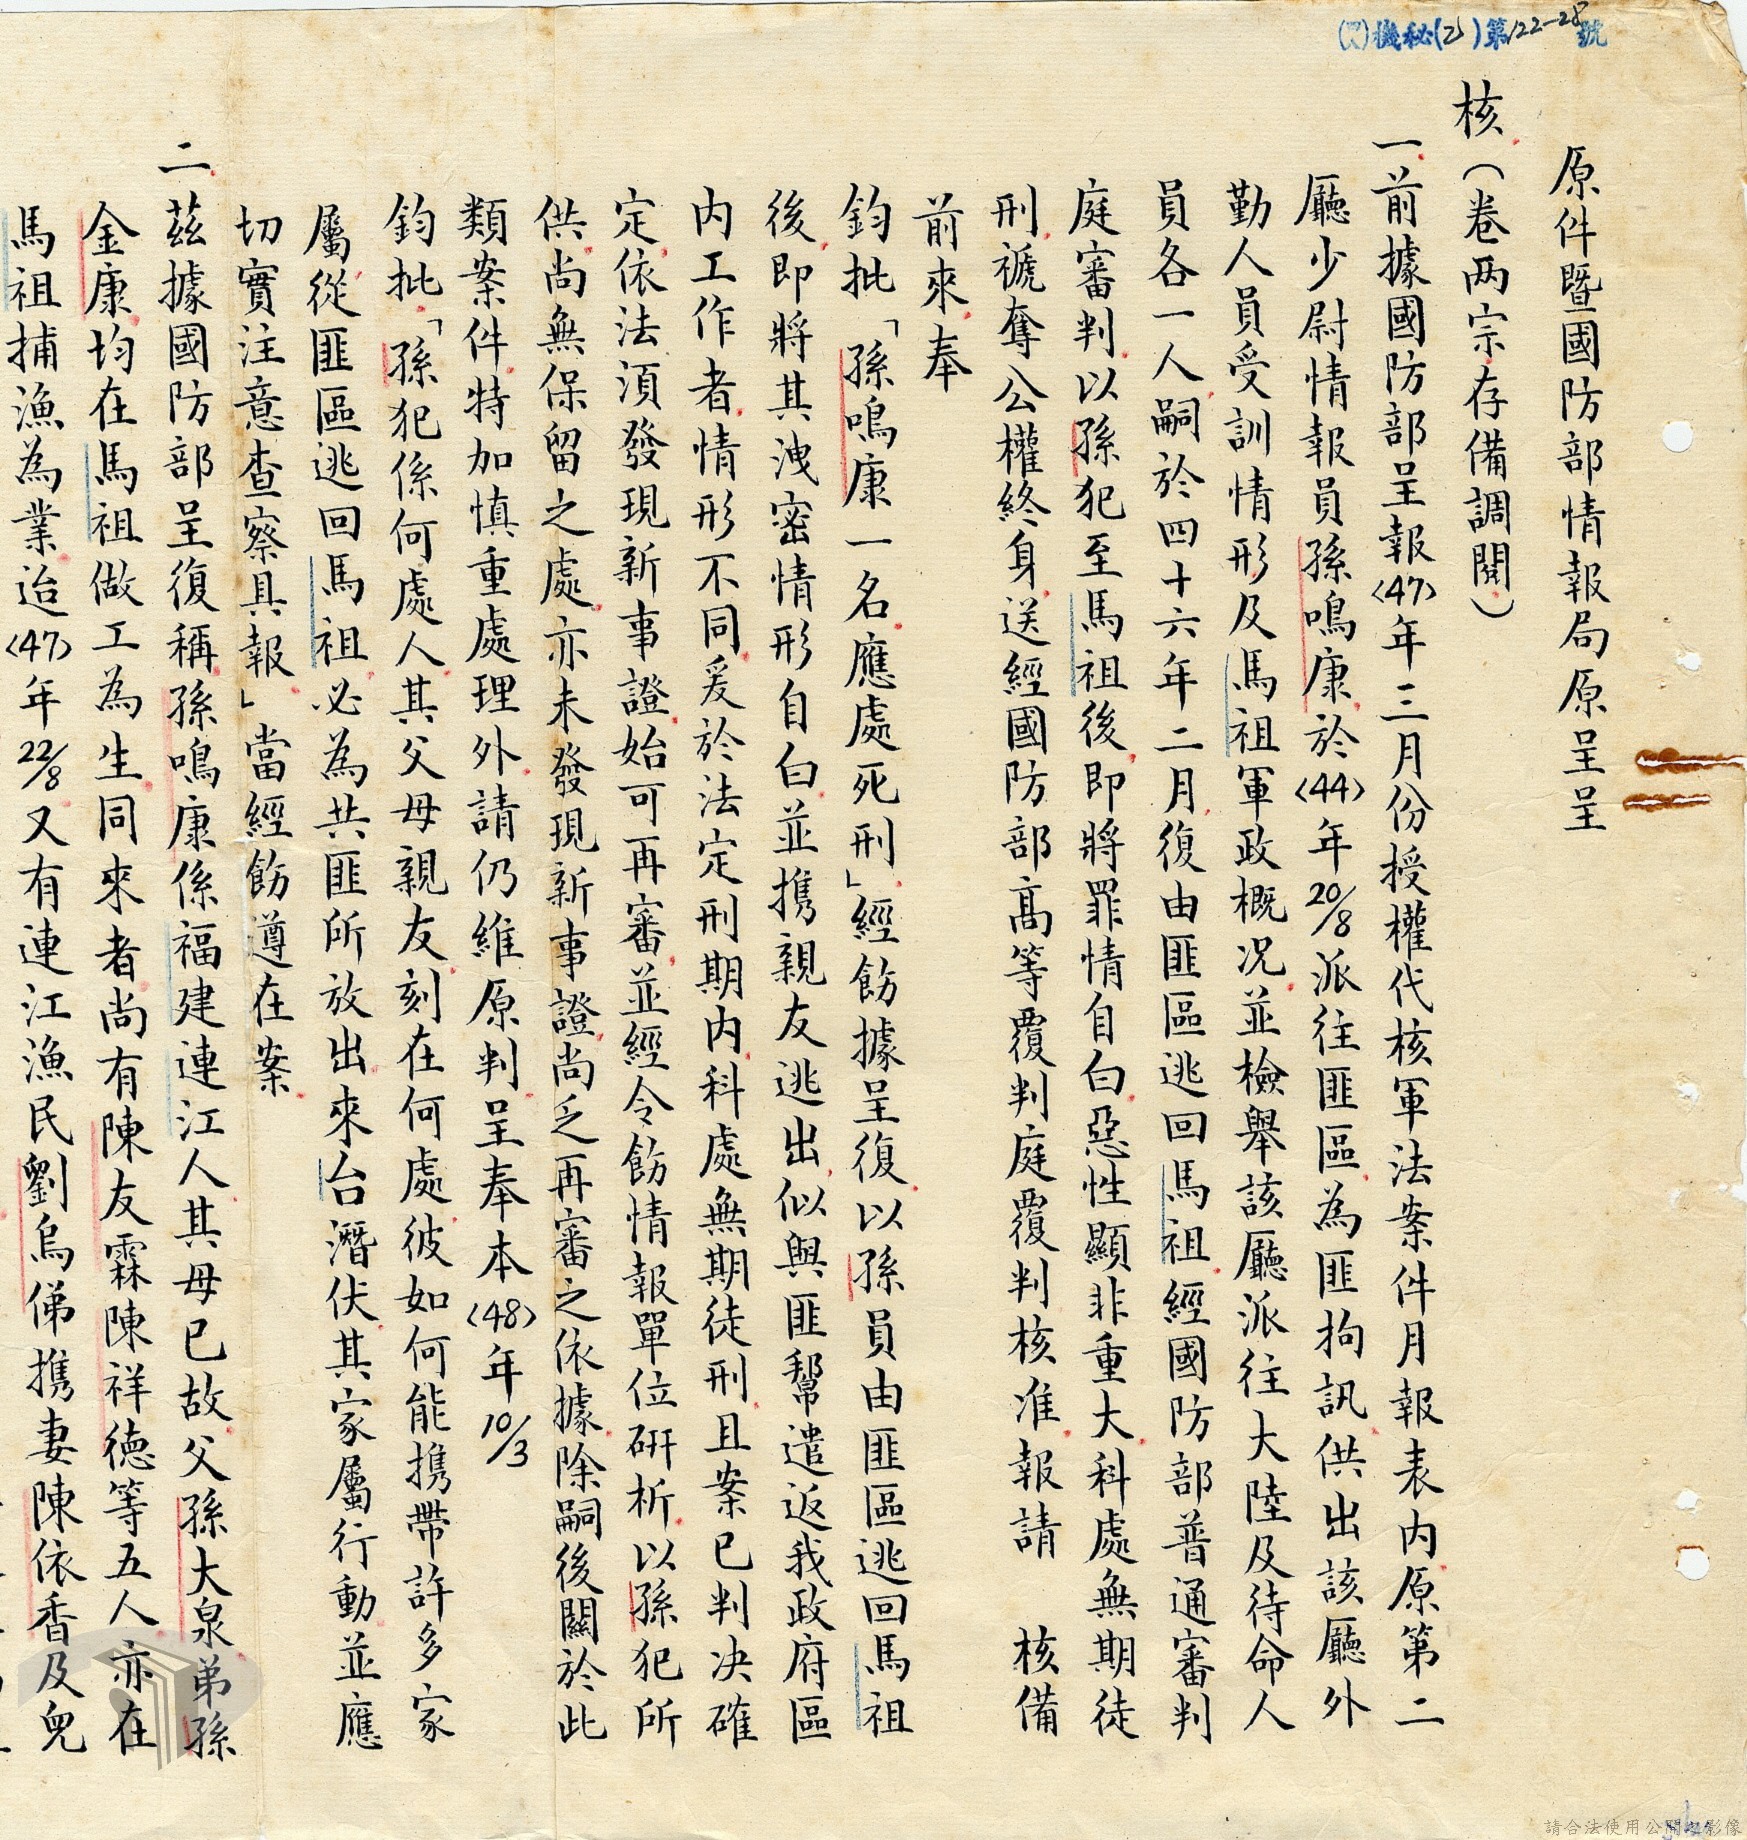 機秘(乙)第122-28號
原件暨國防部情報局原呈呈
核(卷两宗存備調閱)
一前據國防部呈報〈47〉年三月份授權代核軍法案件月報表內原第二
廳少尉情報員孫鳴康於〈44〉年20/8派往匪區為匪拘訊供出該廳外
勤人員受訓情形及馬祖軍政概況並檢舉該廳派往大陸及待命人
員各一人嗣於四十六年二月復由匪區逃回馬祖經國防部普通審判
庭審判以孫犯至馬祖後即將罪情自白惡性顯非重大科處無期徒
刑褫奪公權終身送經國防部高等覆判庭覆判核准報請 核備
前來奉
鈞批「孫鳴康一名應處死刑」經飭據呈復以孫員由匪區逃回馬祖
後即將其洩密情形自白並携親友逃出似與匪幫遣返我政府區
內工作者情形不同爰於法定刑期內科處無期徒刑且案已判決確
定依法須發現新事證始可再審並經令飭情報單位研析以孫犯所
供尚無保留之處亦未發現新事證尚乏再審之依據除嗣後關於此
類案件特加慎重處理外請仍維原判呈奉本〈48〉年10/3
鈞批「孫犯係何處人其父母親友刻在何處彼如何能携帶許多家
屬從匪區逃回馬祖必為共匪所放出來台潛伏其家屬行動並應
切實注意查察具報」當經飭遵在案
二茲據國防部呈復稱孫鳴康係福建連江人其母已故父孫大泉弟孫
金康均在馬祖做工為生同來者尚有陳友霖陳祥德等五人亦在
馬祖捕漁為業迨〈47〉年22/8又有連江漁民劉烏俤携妻陳依香及兒
請合法使用公開之影像